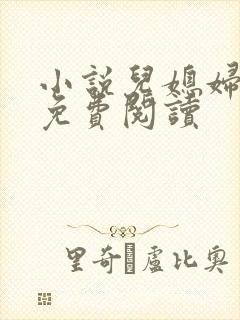 小說兒媳婦
免費閱讀
里奇·盧比奧